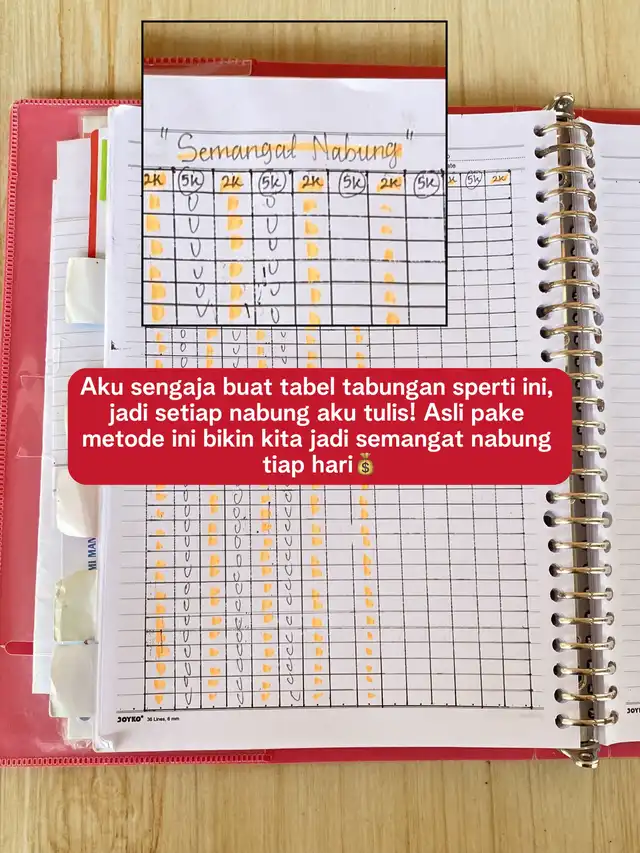 "Semangat Nabung"
2K 5K 2K 5K 2K 5K 2K 5K
5K 2K
Aku sengaja buat tabel tabungan sperti ini,
jadi setiap nabung aku tulis! Asli pake
metode ini bikin kita jadi semangat nabung
tiap hari💰
JOYKO® 36 Lines, 6 mm
JOYKO